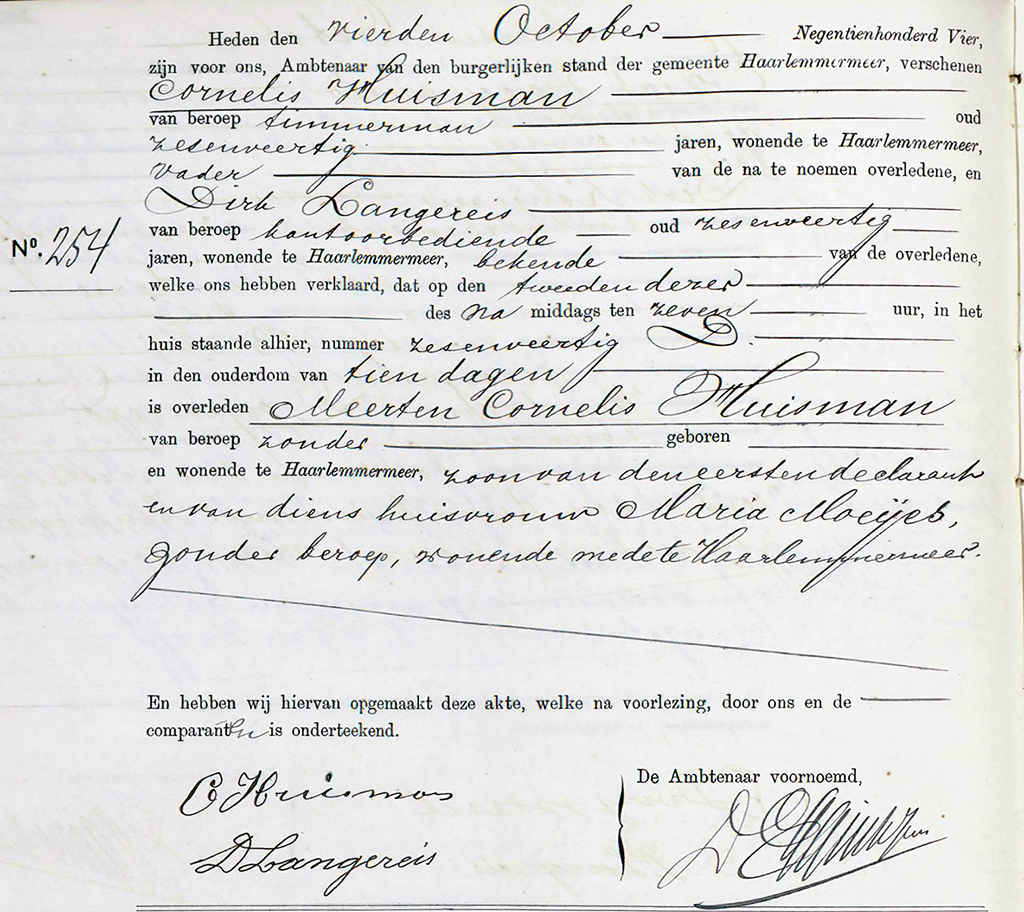 Heden den vierden October Negentienhonderd Vier,
zijn voor ons, Ambtenaar van den burgerlijken stand der gemeente Haarlemmermeer, verschenen
Cornelis Huisman
van beroep timmerman oud
zesenveertig jaren, wonende te Haarlemmermeer,
vader van de na te noemen overledene, en
Dirk Langereis
van beroep kantoorbediende oud zesenveertig
No. 254
jaren, wonende te Haarlemmermeer, bekende van de overledene,
welke ons hebben verklaard, dat op den tweeden dezer
des na middags ten zeven uur, in het
huis staande alhier, nummer zesenveertig D.
in den ouderdom van tien dagen
is overleden Meerten Cornelis Huisman
van beroep zonder geboren
en wonende te Haarlemmermeer, zoon van den eersten declarant
en van diens huisvrouw Maria Moeijes,
zonder beroep, wonende mede te Haarlemmermeer.
En hebben wij hiervan opgemaakt deze akte, welke na voorlezing, door ons en de
comparanten is onderteekend.
De Ambtenaar voornoemd,
C Huisman
D Langereis